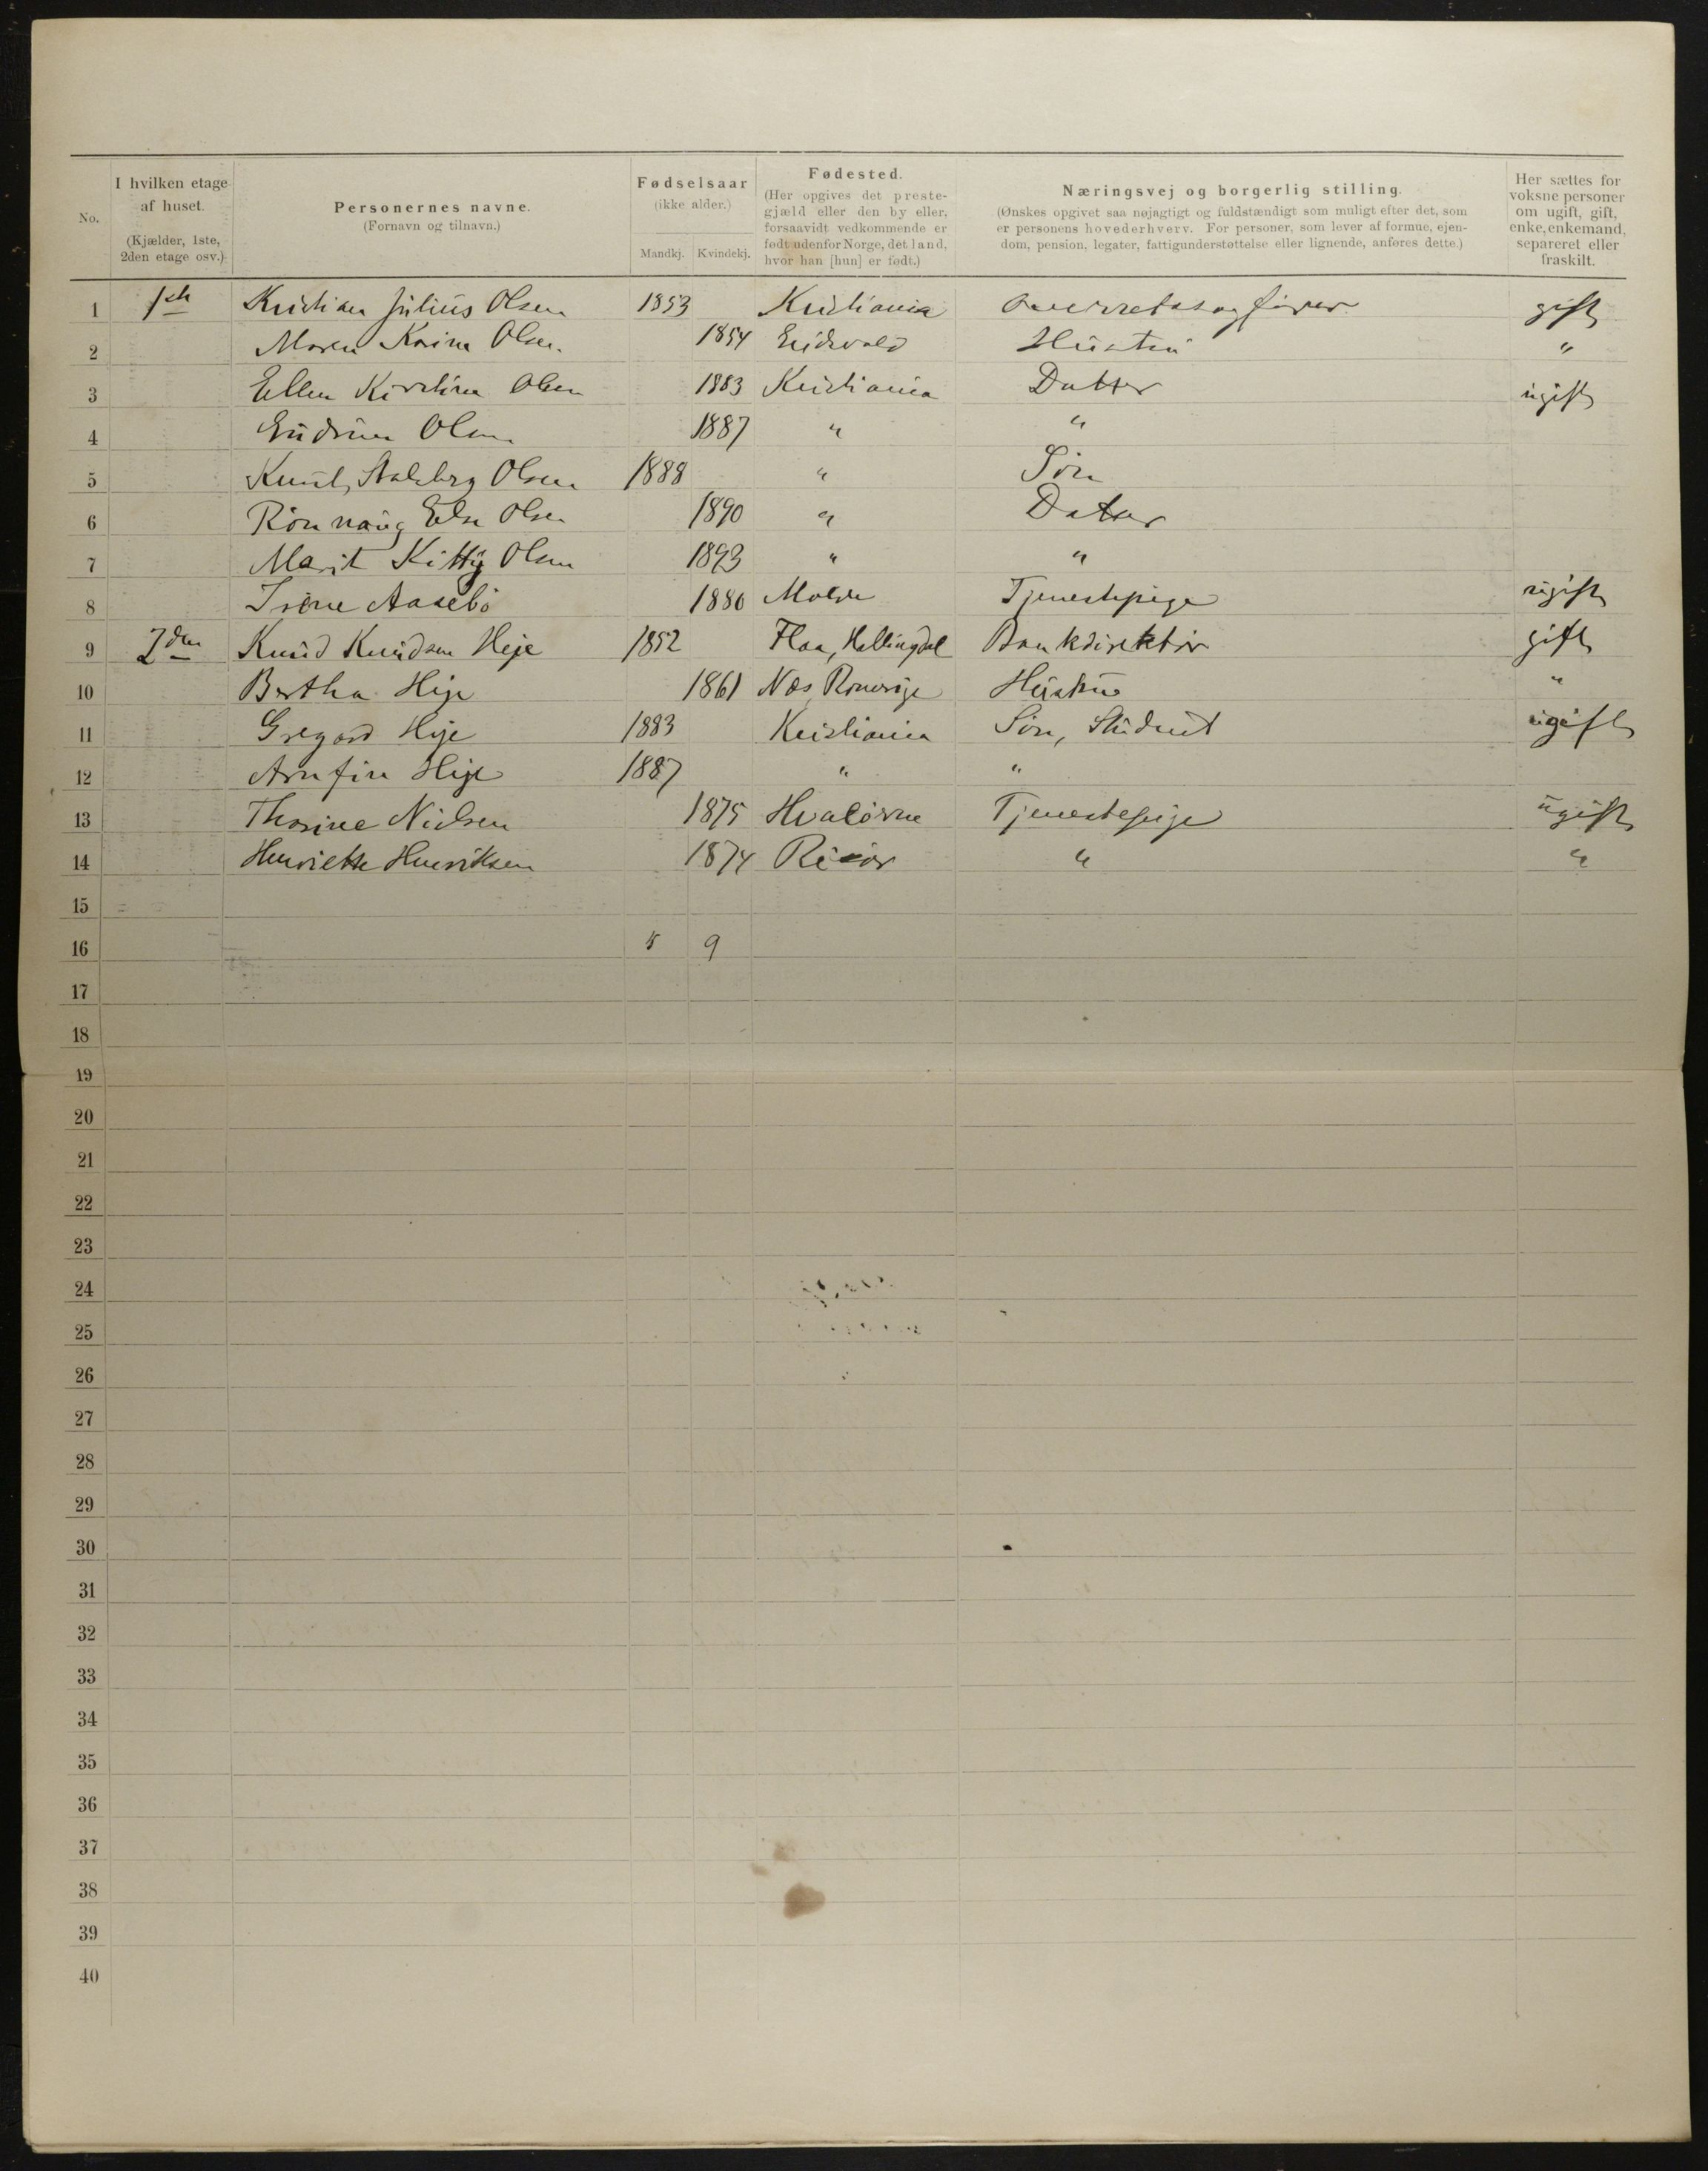 No.
I hvilken etage af huset. (Kjælder, 1ste, 2den etage osv.)
Personernes navne. (Fornavn og tilnavn.)
Fødselsaar (ikke alder.)
Mandkj. Kvindekj.
Fødested. (Her opgives det prestegjæld eller den by eller, forsaavidt vedkommende er født udenfor Norge, det land, hvor han [hun] er født.)
Næringsvej og borgerlig stilling. (Ønskes opgivet saa nøjagtigt og fuldstændigt som muligt efter det, som er personens hovederhverv. For personer, som lever af formue, ejendom, pension, legater, fattigunderstøttelse eller lignende, anføres dette.)
Her sættes for voksne personer om ugift, gift, enke, enkemand, separeret eller fraskilt.
1 1ste Kristian Julius Olsen 1853 Kristiania Overretssagfører gift
2 Maren Karine Olsen 1854 Eidsvold Hustru "
3 Ellen Kirstine Olsen 1883 Kristiania Datter ugift
4 Gudrun Olsen 1887 " "
5 Knut Olsen 1888 " Søn
6 Rønnaug Else Olsen 1890 " Datter
7 Marit Kitty Olsen 1893 " "
8 Irene Aasebø 1880 Molde Tjenestepige ugift
9 2den Knud Knudsen Heje 1852 Flaa, Hallingdal Bankdirektør gift
10 Bertha Heje 1861 Næs Romerige Hustru "
11 Gregard Heje 1883 Kristiania Søn, Student ugift
12 Arnfin Heje 1887 " "
13 Thorine Nielsen 1875 Hvaløerne Tjenestepige ugift
14 Henriette Henriksen 1874 Risør " "
15
16 5 9
17
18
19
20
21
22
23
24
25
26
27
28
29
30
31
32
33
34
35
36
37
38
39
40